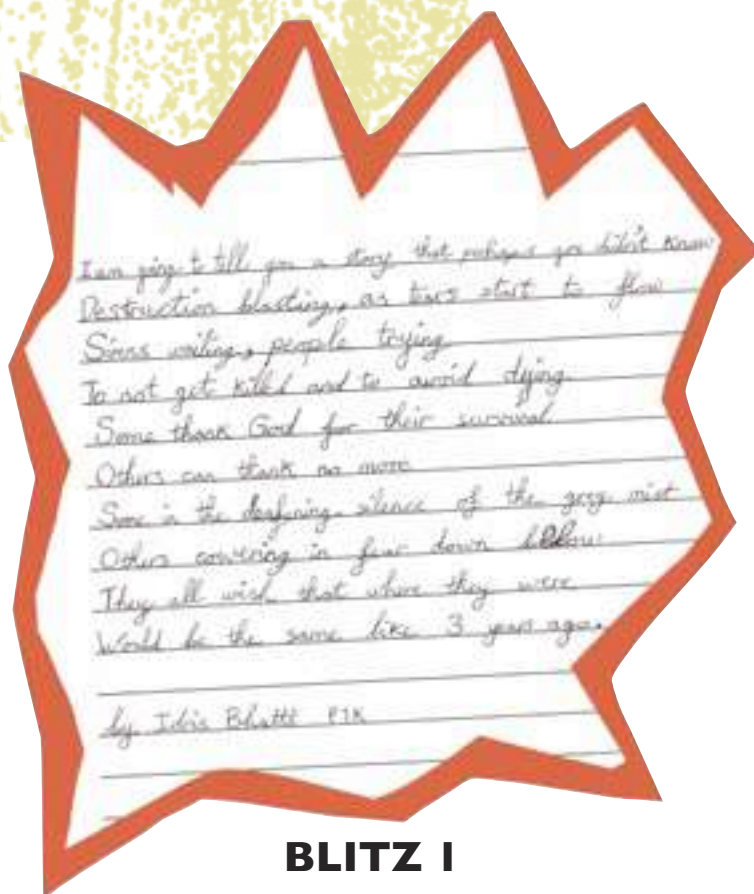 I am going to tell you a story that perhaps you didn't know
Destruction blasting, as tears start to flow
Sirens wailing, people trying
To not get killed and to avoid dying
Some thank God for their survival.
Others can thank no more
Some in the deafening silence of the grey mist
Others cowering in fear down below
They all wish that where they were
Would be the same like 3 years ago.
by Idris Bhatti
BLITZ 1